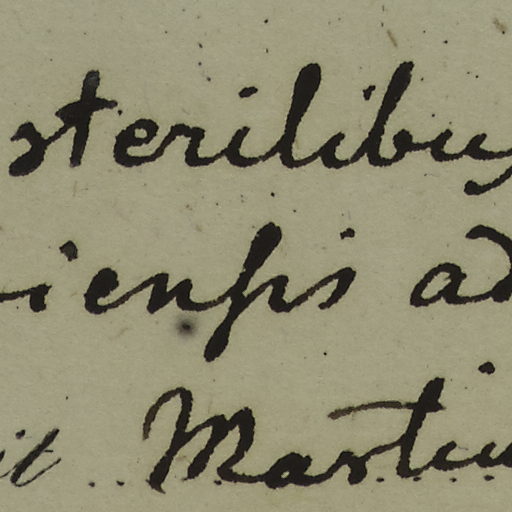 sterilibus
iensis ad
it .. Martiu